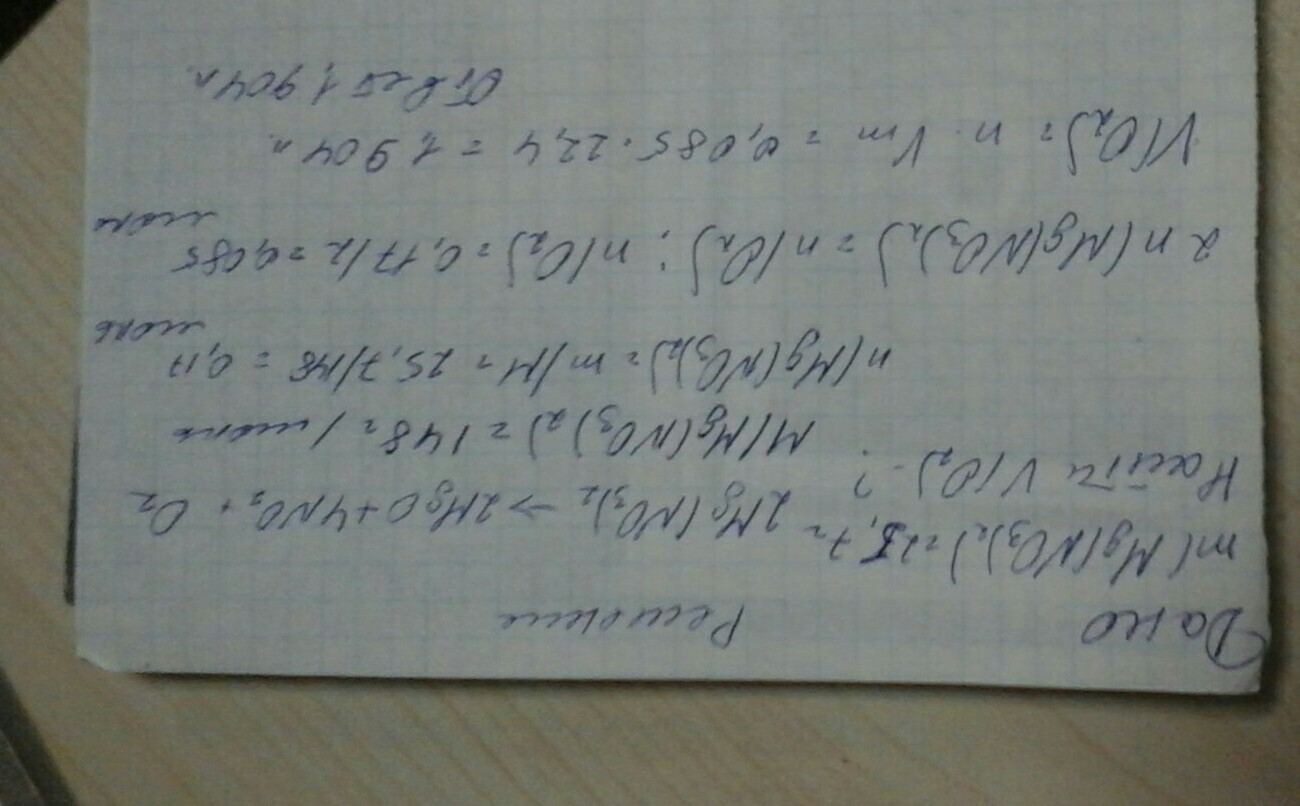 Дано Решение
m(Mg(NO3)2)=25,7г 2Mg(NO3)2 → 2MgO+4NO2+O2
Найти V(O2)-?
M(Mg(NO3)2) = 148г/моль
n(Mg(NO3)2)= m/M = 25,7/148 = 0,17 моль
2n(Mg(NO3)2) = n(O2); n(O2)=0,17/2=0,085 моль
V(O2)= n·Vm = 0,085·22,4 = 1,904л
Ответ 1,904л